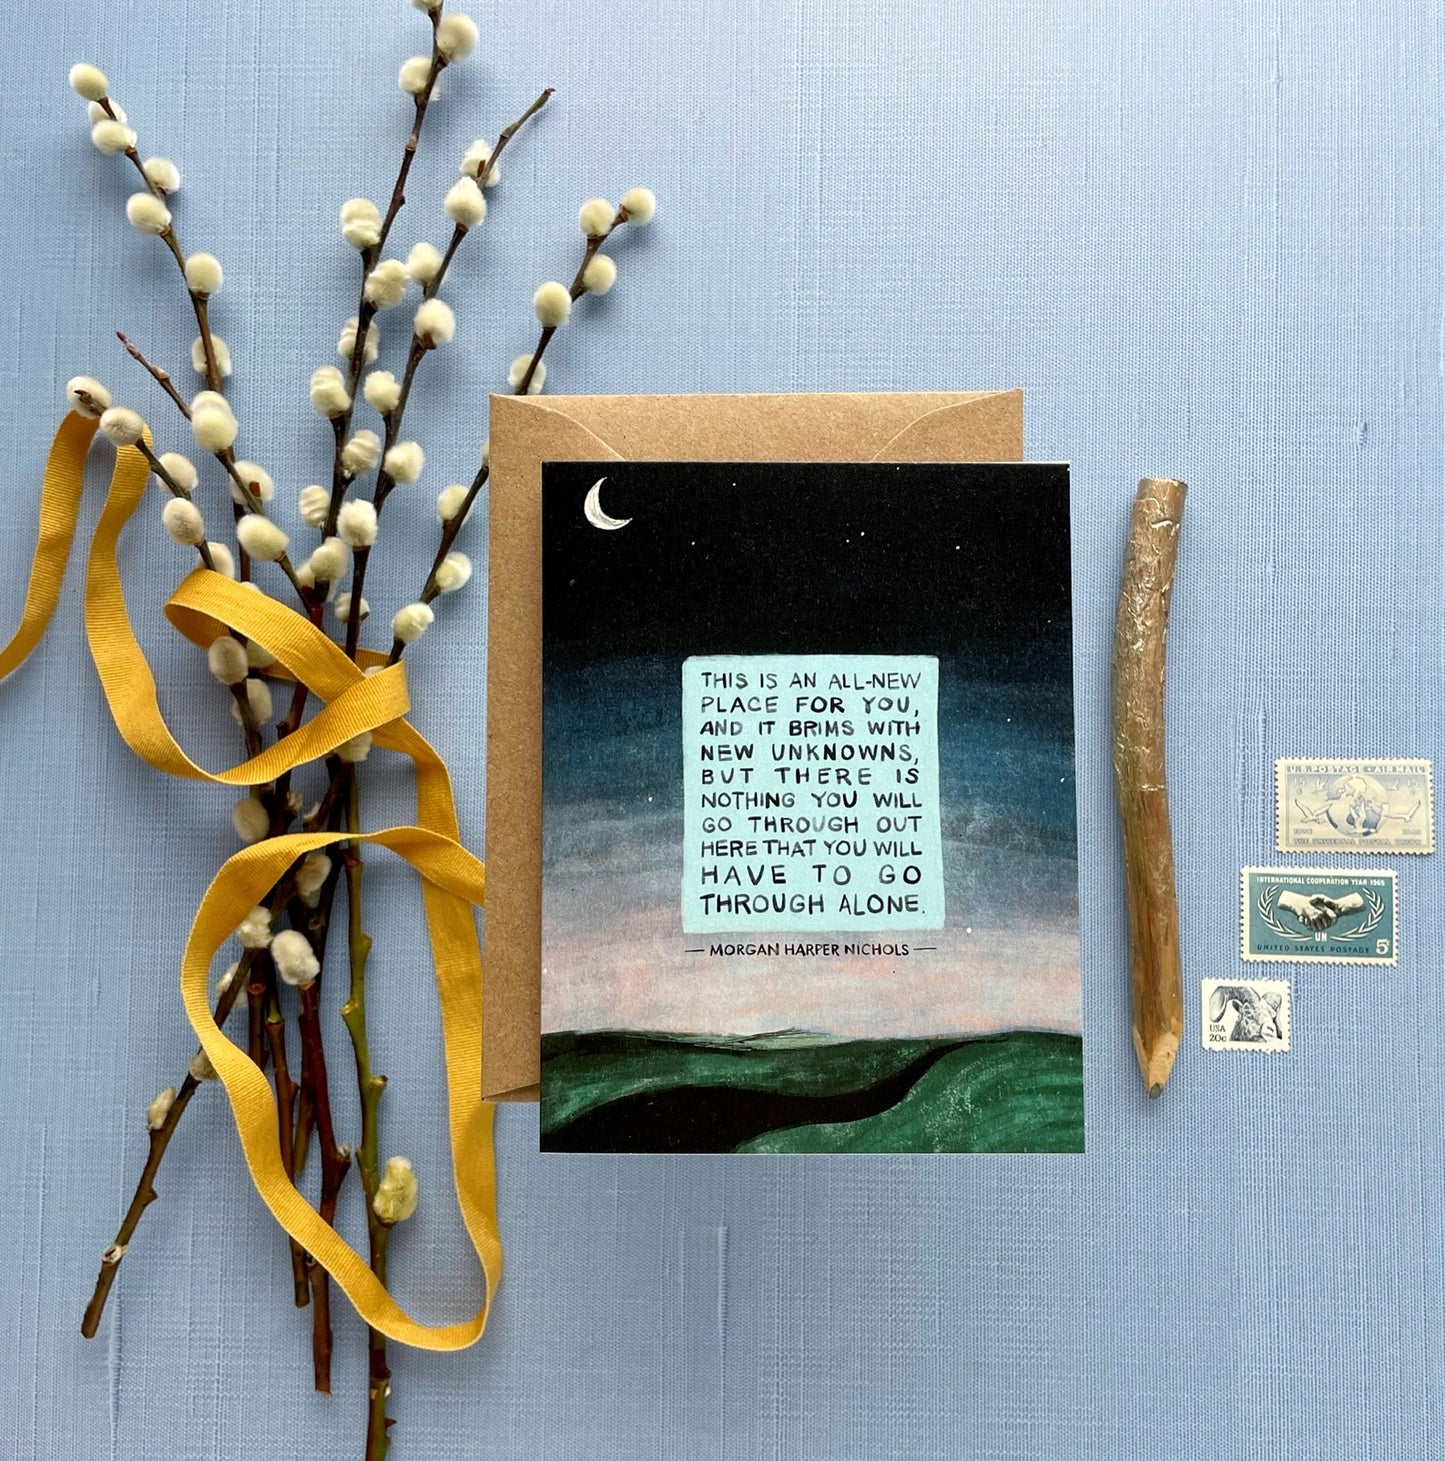 THIS IS AN ALL-NEW
PLACE FOR YOU,
AND IT BRIMS WITH
NEW UNKNOWNS,
BUT THERE IS
NOTHING YOU WILL
GO THROUGH OUT
HERE THAT YOU WILL
HAVE TO GO
THROUGH ALONE.
— MORGAN HARPER NICHOLS —
U.S. POSTAGE · AIR MAIL
THE UNIVERSAL POSTAL UNION
INTERNATIONAL COOPERATION YEAR 1965
UN
UNITED STATES POSTAGE 5¢
USA
20c